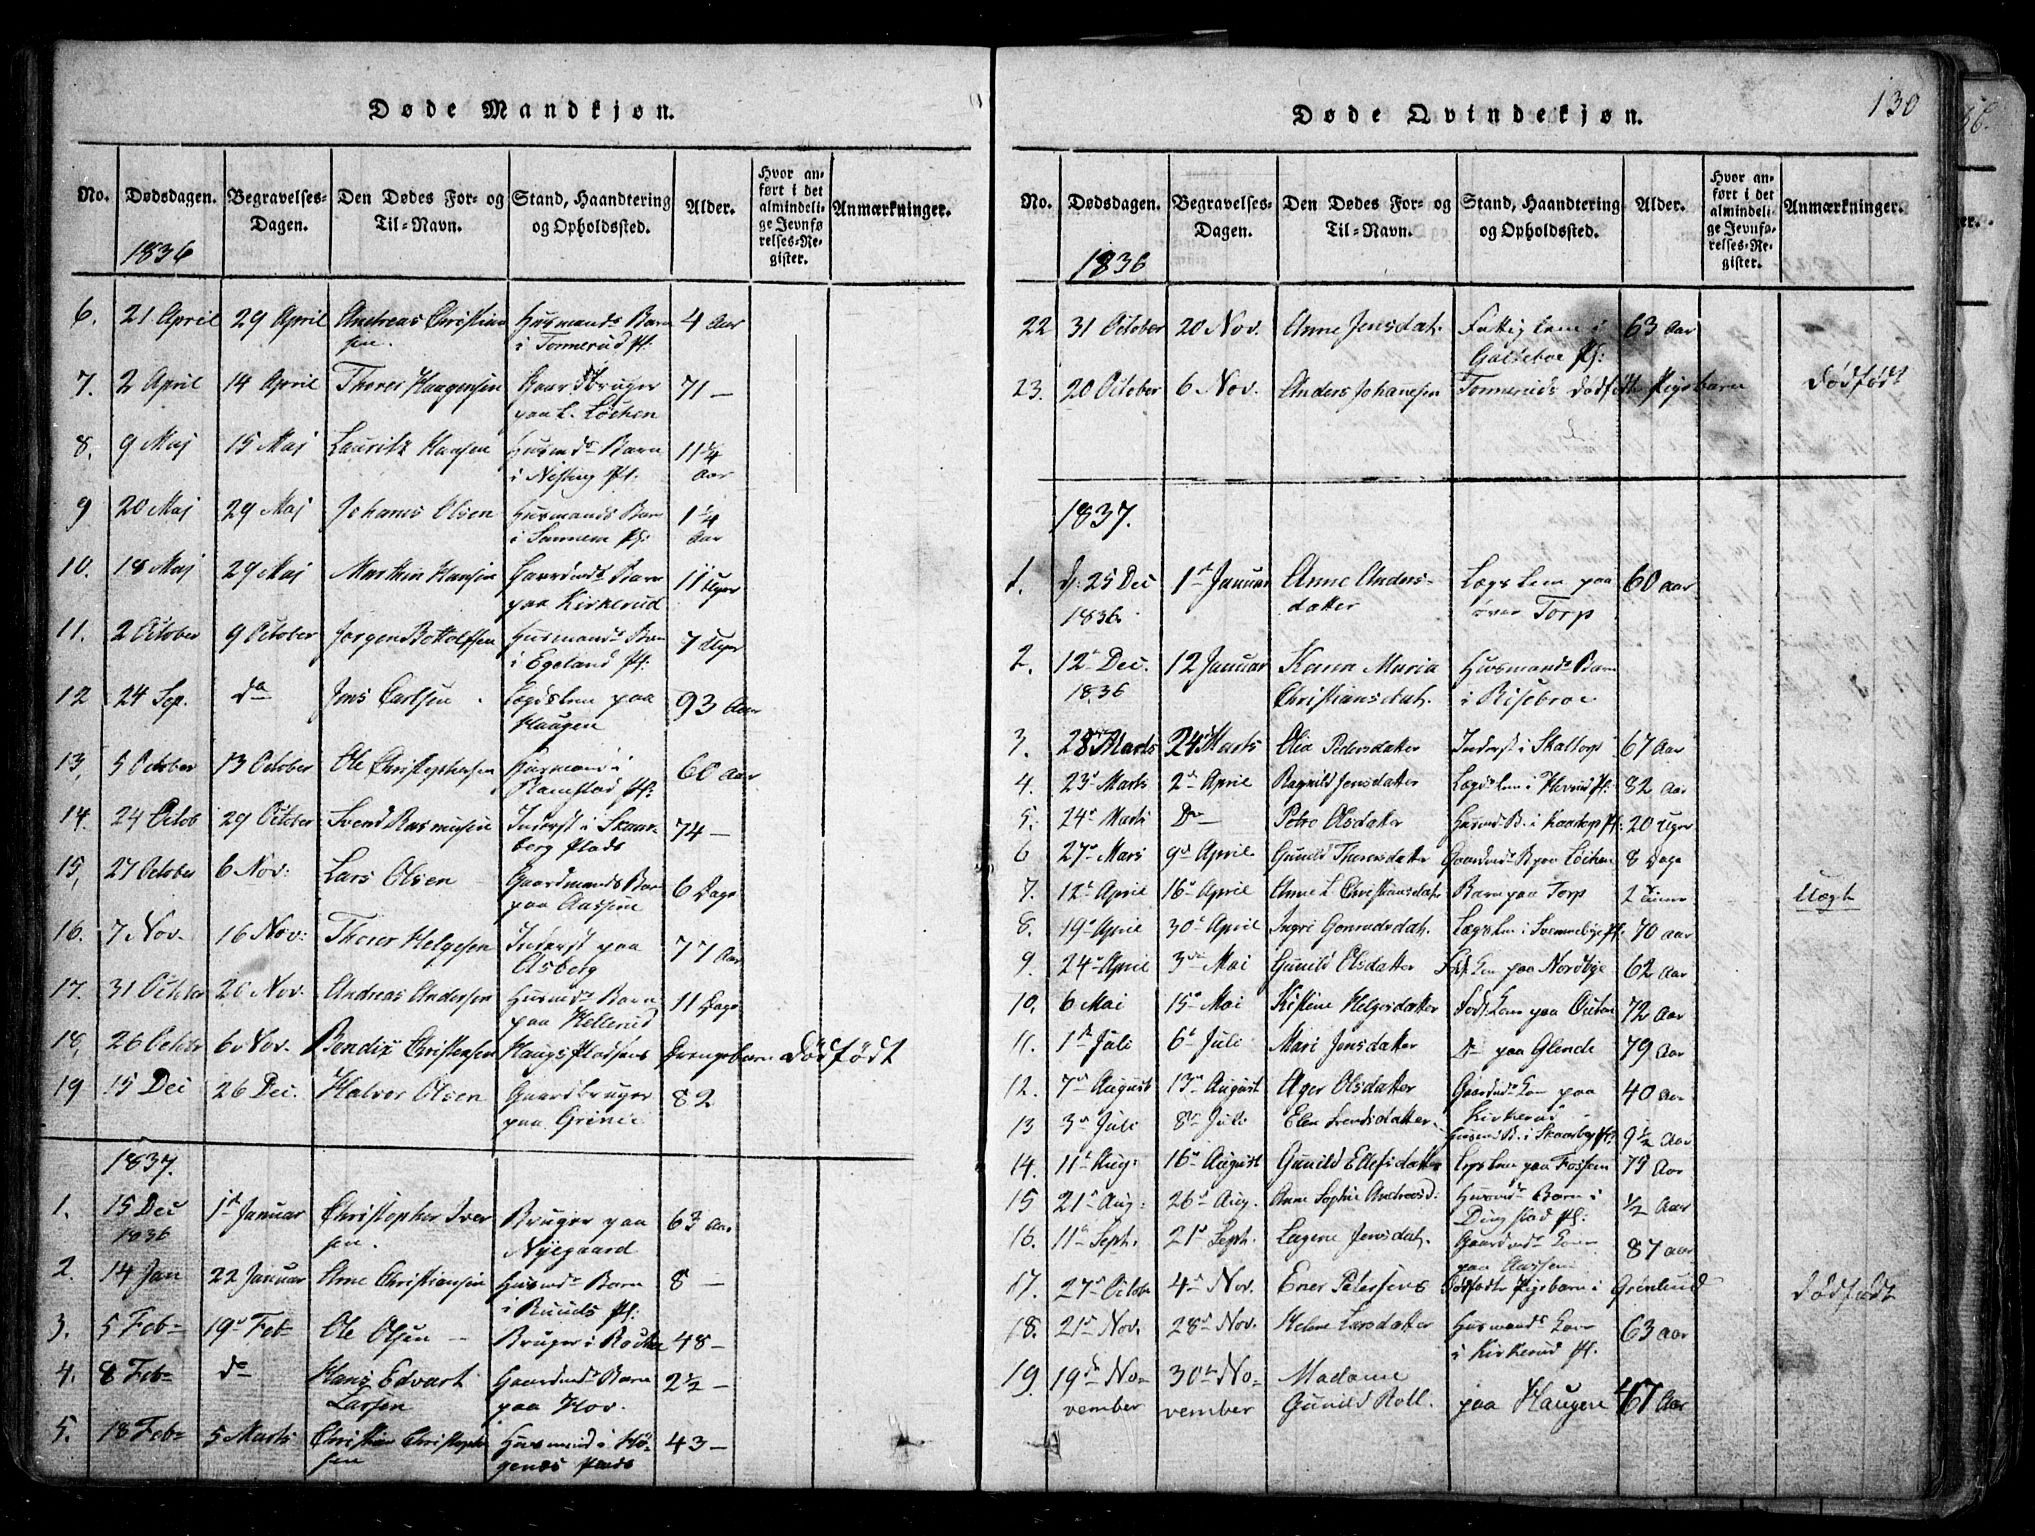 Døde Mandkjøn.
No. Dødsdagen. Begravelses-Dagen. Den Dødes For- og Til-Navn. Stand, Haandtering og Opholdssted. Alder. Hvor anført i det almindelige Jevnførelses-Register. Anmærkninger.
1836
6. 21 April 29 April Andreas Christian
sen. Husmands Barn i Tonnerud Pl: 4 Aar
7. 2 April 14 April Thorer Haagensen Gaardbruger
paa L. Løchen 71 —
8. 9 Maj 15 Maj Lauritz Hansen Husmds Barn
i Pl: 11 1/4 Aar
9 20 Maj 29 Maj Johanes Olsen Husmands Barn
i Sannem Pl: 1 1/4 Aar
10. 18 Maj 29 Maj Marthin Hansen Gaardmds Barn
paa Kirkerud 11 Uger
11. 2 October 9 October Jørgen Bottolfsen Husmands Barn
i Egeland Pl: 7 Uger
12 24 Sep. do Jens Carlsen Lægdslem paa
Haugen 93 Aar
13, 5 October 13 October Ole Christophersen Husmand i
Ramstad Pl: 60 Aar
14. 24 Octob 29 October Svend Rasmusen Inderst i Skaar
berg Plads 74 —
15, 27 October 6 Nov: Lars Olsen Gaardmands Barn
paa Aassim 6 Dage
16. 7 Nov. 16 Nov: Thorer Helgesen Inderst paa
Asberg 77 Aar
17. 31 Octbr 20 Nov. Andreas Andersen Husmds Barn
paa Hellerud 11 Dage
18, 26 Octbr 6 Nov. Bendix Christensen Haugs Pladsens Drengebarn dødfødt
19 15 Dec 26 Dec. Halvor Olsen Gaardbruger
paa Grinie 82
1837.
1. 15 Dec
1836 1st Januar Christopher Iver
sen. Bruger paa
Nyegaard 63 Aar
2. 14 Jan 22 Januar Arne Christiansen Husmds Barn
i Ruuds Pl: 8 —
3. 5 Feb 19 Feb Ole Olsen — Bruger i 48 —
4. 8 Feb do Hans Edvart
Larsen Gaardmds Barn
paa Hov. 2 1/2 —
5. 18 Feb 5 Marts Christian Christopher
sen Husmand i Hø-
genæs Plads 43 —
130
Døde Qvindekjøn.
No. Dødsdagen. Begravelses-Dagen. Den Dødes For- og Til-Navn. Stand, Haandtering og Opholdssted. Alder. Hvor anført i det almindelige Jevnførelses-Register. Anmærkninger.
1836
22 31 October 20 Nov. Anne Jensdat. Fattiglem i
Galteboe Pl: 63 Aar
23. 20 October 6 Nov. Anders Johansen Tonneruds dødfødte Pigebarn dødfødt
1837.
1. d: 25 Dec
1836 1st Januar Anne Anders-
datter Lægslem paa
øvre Torp 60 Aar
2. 12 Dec.
1836 12 Januar Karen Maria
Christiansdat. Husmands Barn
i Risebroe
3. 28 Marts 24 Marts Olia Pedersdatter Inderst i Skaltorp 67 Aar
4. 23 Marts 2 April Ragnild Jensdatter Lægdslem i Pl: 82 Aar
5. 24 Marts Do — Petro Olsdatter Husmds B. i Kaatorp Pl: 20 Uger
6 27 Mars 9 April Gunild Thorersdatter Gaardmds B. paa Løchen 8 Dage
7. 12 April 16 April Anne L Christiansdat. Barn paa Torp 2 Timer Uægte
8. 19 April 30 April Ingri Gonnersdat. Lægslem i Svennebye Pl: 70 Aar
9. 24 April 3 Mai Gunild Olsdatter paa Nordbye 62 Aar
10. 6 Mai 15 Mai Kistine Helgesdatter paa 72 Aar
11. 1st Juli 6 Juli Mari Jensdatter Do paa Glende 79 Aar
12. 7 August 13 August Ager Olsdatter Gaardmds Kone paa
Kirkerud 40 Aar
13 3 Juli 8 Juli Elen Svendsdatter Husmds B. i Skaarberg Pl: 9 1/2 Aar
14. 11 Aug: 16 August Gunild Ellefsdatter Lægslem paa Fossem 79 Aar
15 21 Aug: 26 Aug. Anne Sophie Andreasd: Husmds Barn i
Dingstad Pl: 1/2 Aar
16. 11 Sept. 21 Sept. Eugene Jensdat. Gaardmds Kone
paa Aassim 87 Aar
17. 27 Octobr 4 Nov. Ener Petersens Dødfødte Pigebarn i Grønlund dødfødt
18. 21 Nov. 28 Nov. Helene Larsdatter Husmands Kone
i Kirkerud Pl. 63 Aar
19 19de No-
vember 30te No-
vember Madame
Gunild Roll. paa Haugen 67 Aar